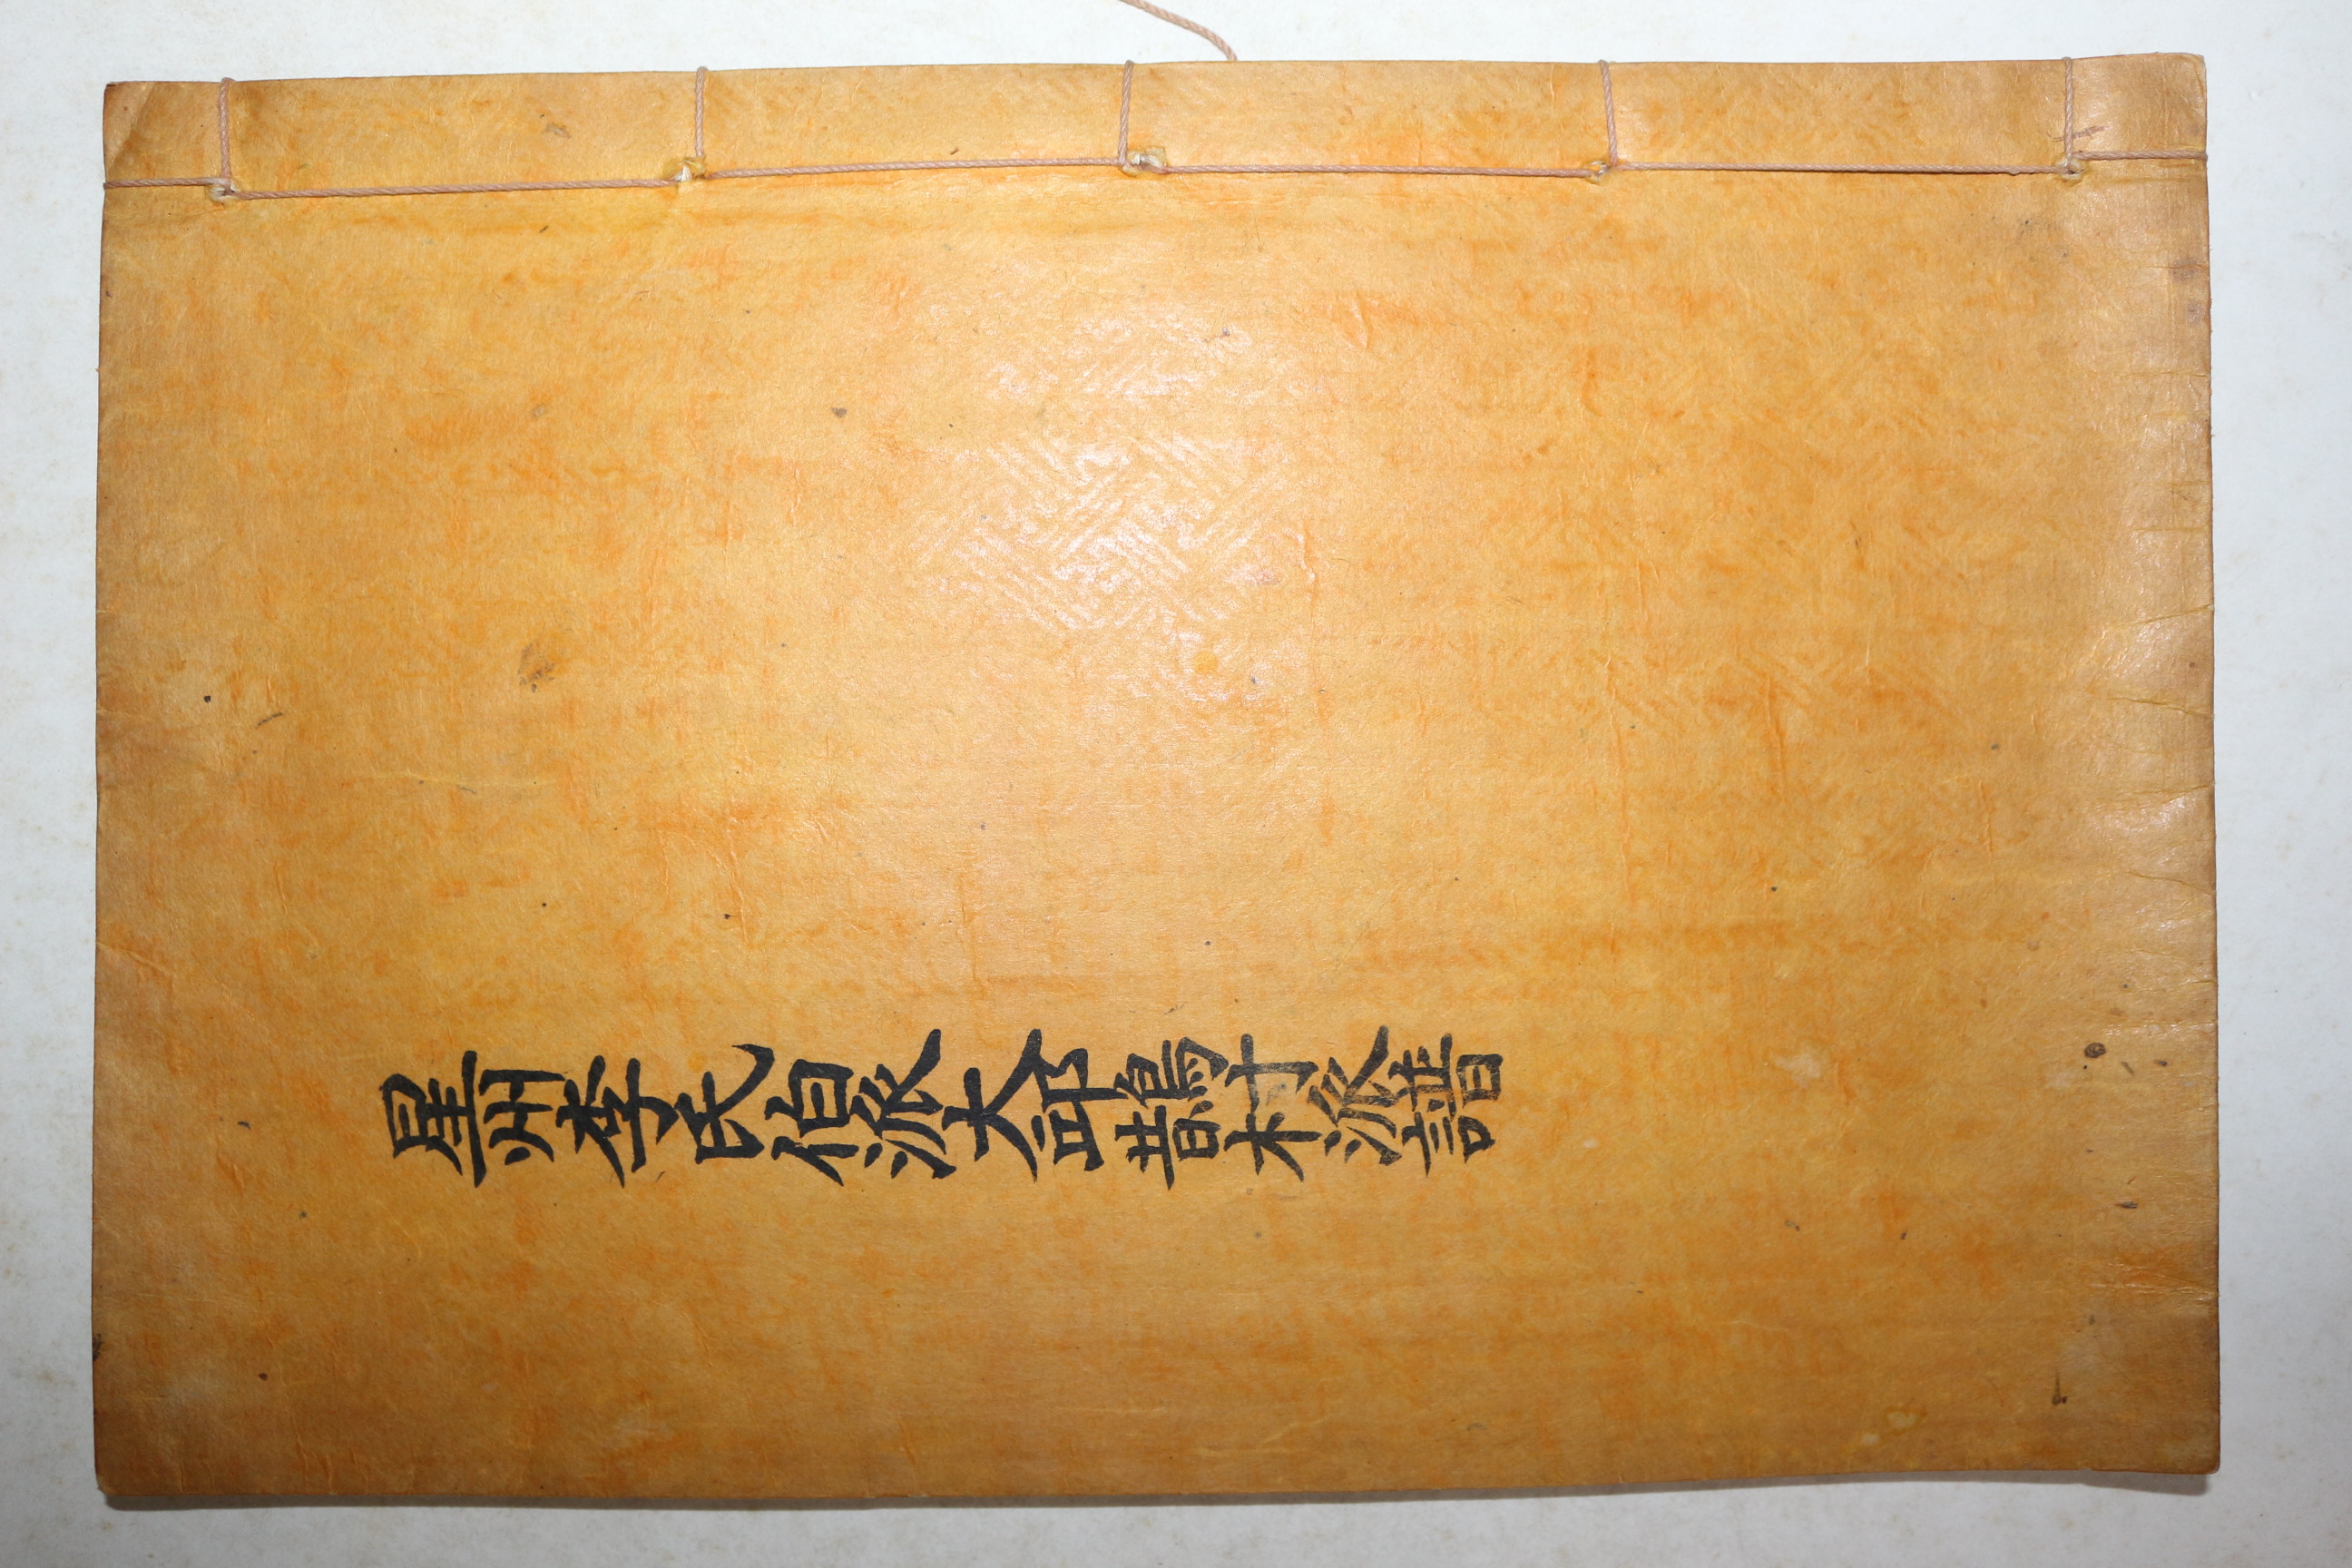 星州李氏伯派大邱鵲村派譜